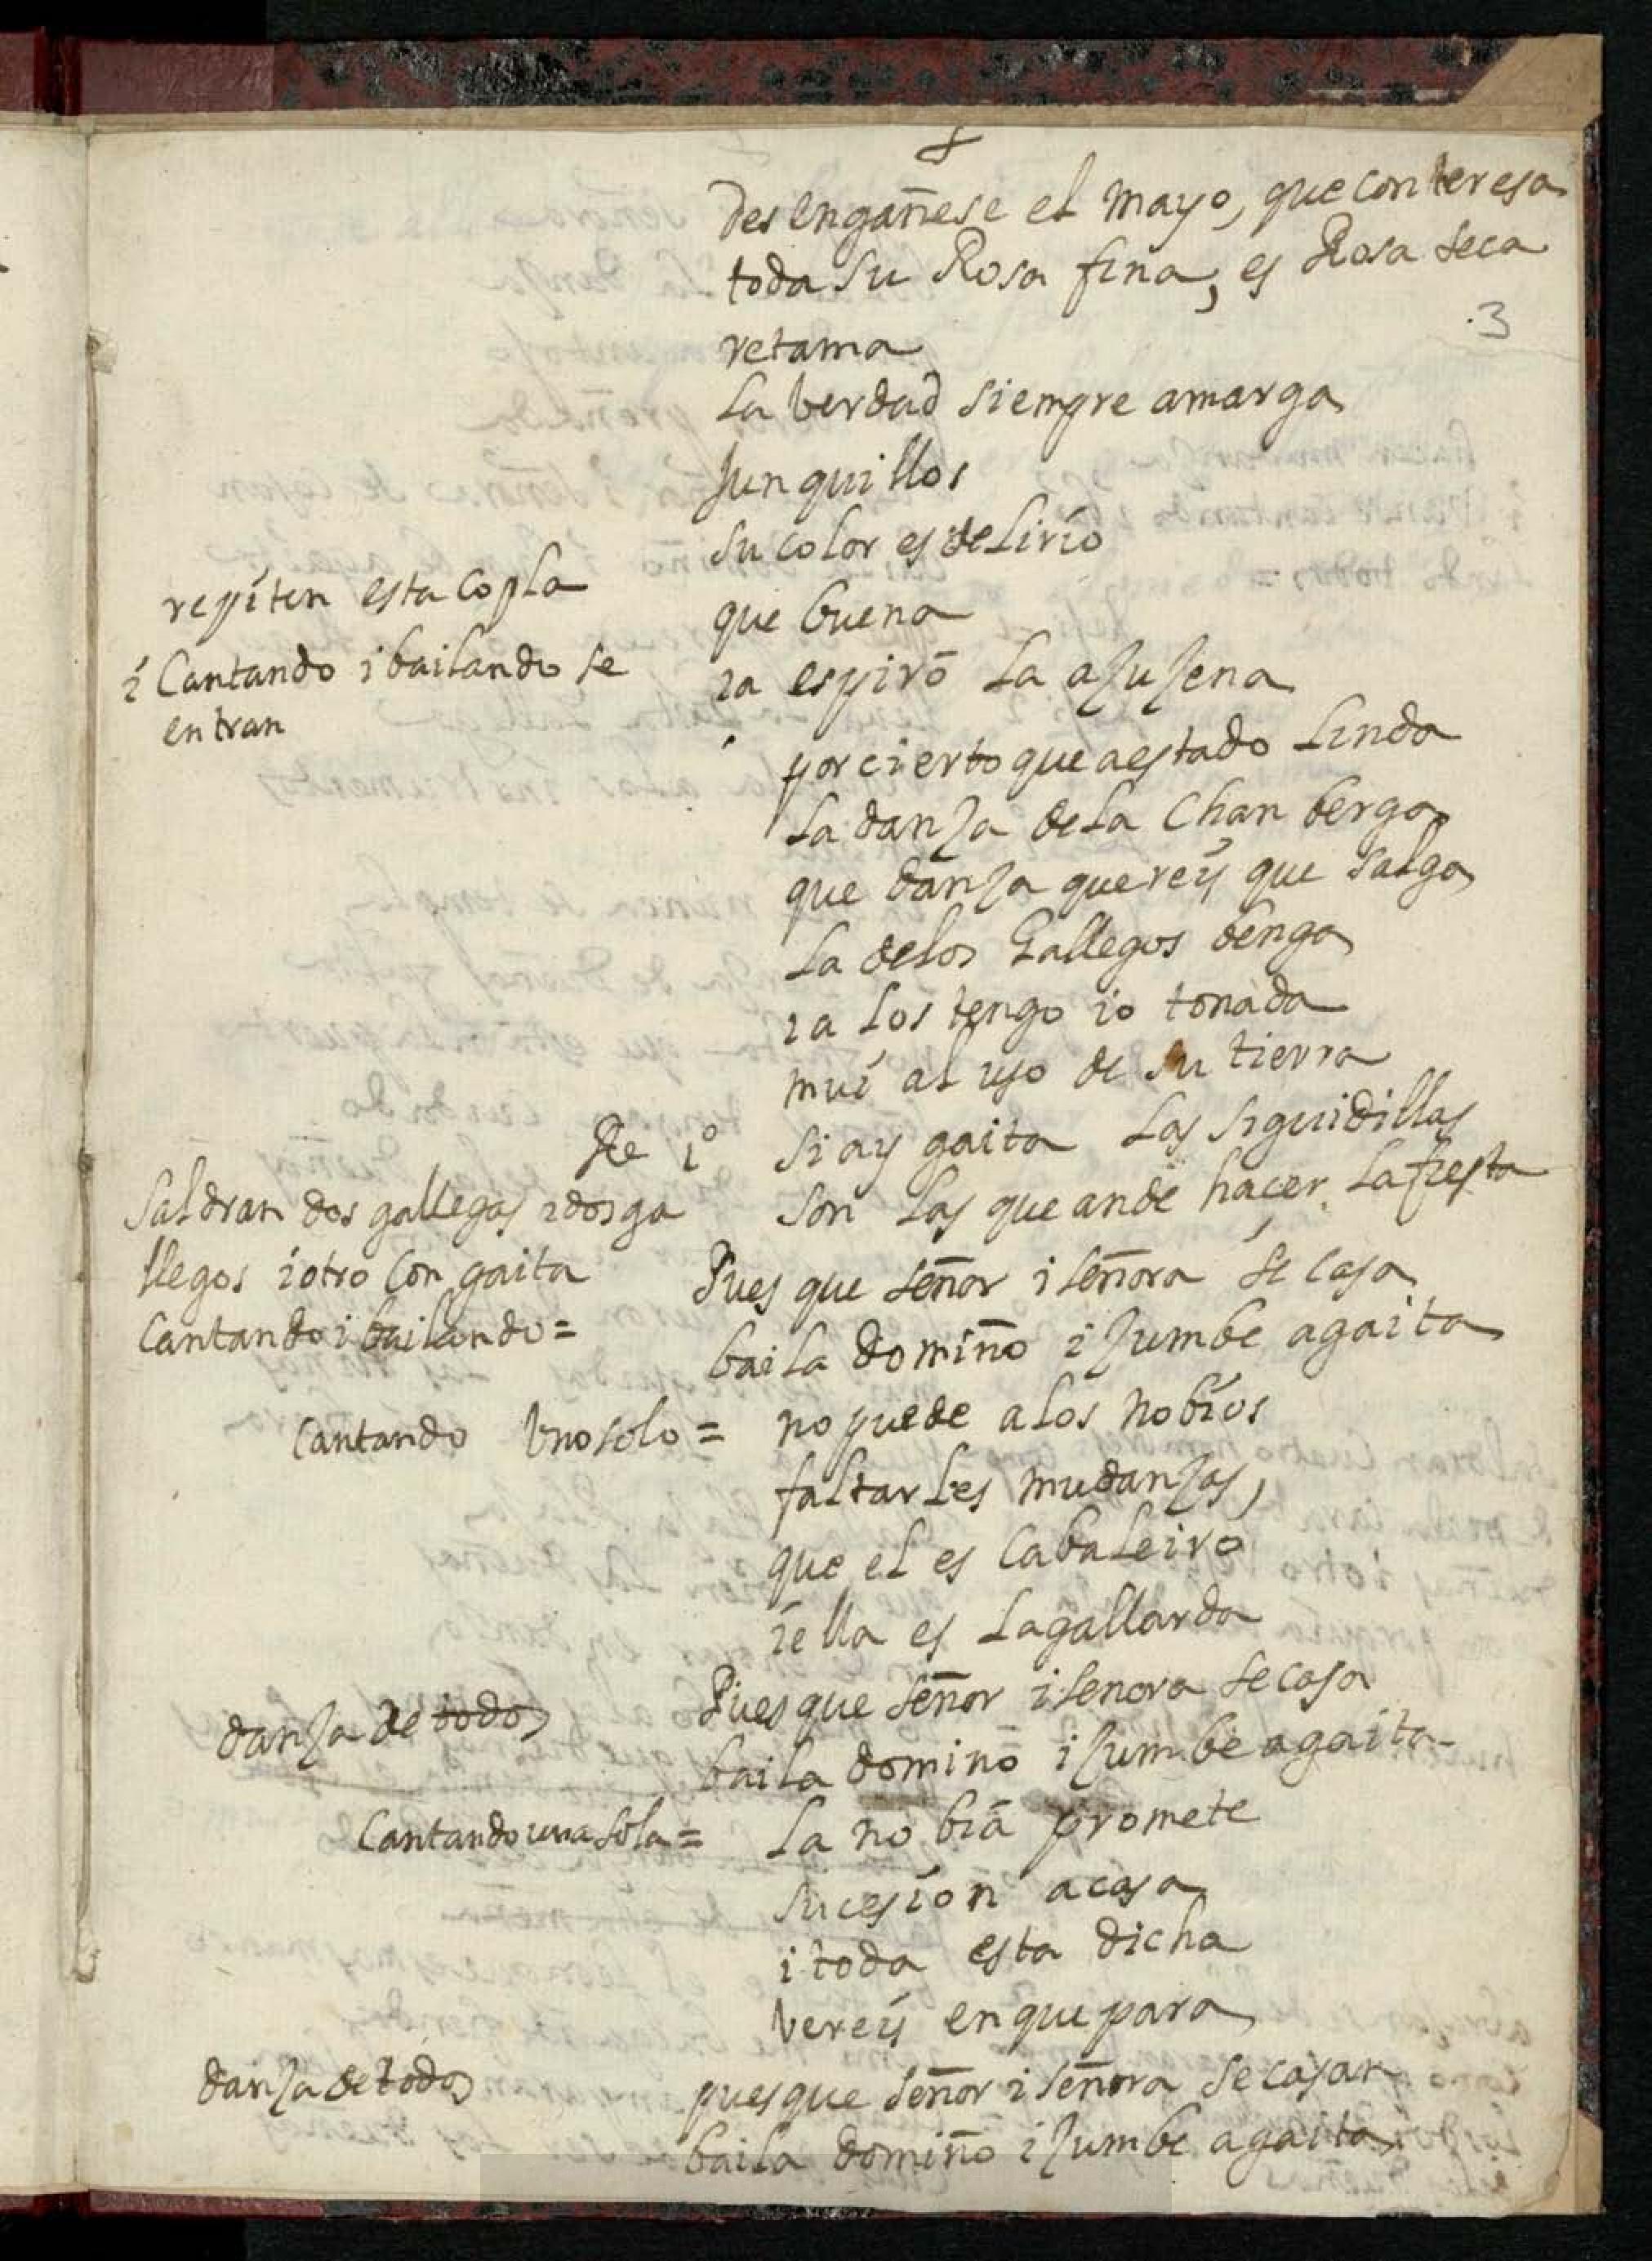 desengañese el mayo, que con teresa
toda su Rosa fina, es Rosa seca
3
retama
La berdad siempre amarga
junquillos
su color es de Lirio
repiten esta copla
que buena
i Cantando i bailando se
ia espiró La açuçena
entran
por cierto que a estado Linda
La dança de La Chanberga
que dança quereis que salga
La de los Gallegos benga
ia Los tengo io tonada
mui al uso de su tierra
Re 1º si ay gaita Las siguidillas
Saldran dos gallegas i dos ga
son Las que an de hacer La fiesta
llegos i otro con gaita
Pues que señor i señora se casa
Cantando i bailando =
baila domiño i çumbe a gaita
Cantando Uno solo = no puede a los nobios
faltarLes mudanças,
que el es CabaLeiro
i ella es La gallarda
Pues que señor i senora se casa
dança de todos
baila domino i çumbe a gaita
Cantando una sola = La nobia promete
sucesion a casa
i toda esta dicha
bereis en que para
dança de todos
pues que señor i señora se casan
baila domiño i çumbe a gaita